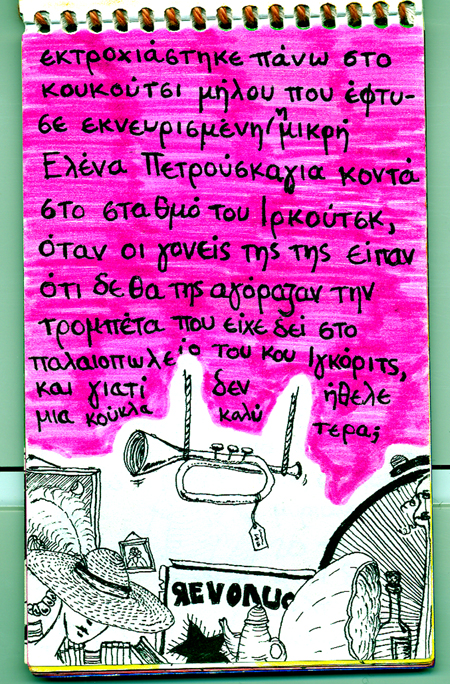 εκτροχιάστηκε πάνω στο
κουκούτσι μήλου που έφτυ-
σε εκνευρισμένη/η μικρή
Ελένα Πετρούσκαγια κοντά
στο σταθμό του Ιρκούτσκ,
όταν οι γονείς της της είπαν
ότι δε θα της αγόραζαν την
τρομπέτα που είχε δει στο
παλαιοπωλείο του κου Ιγκόριτς,
και γιατί δεν ήθελε
μια κούκλα καλύτερα;
ЯEVOLUC